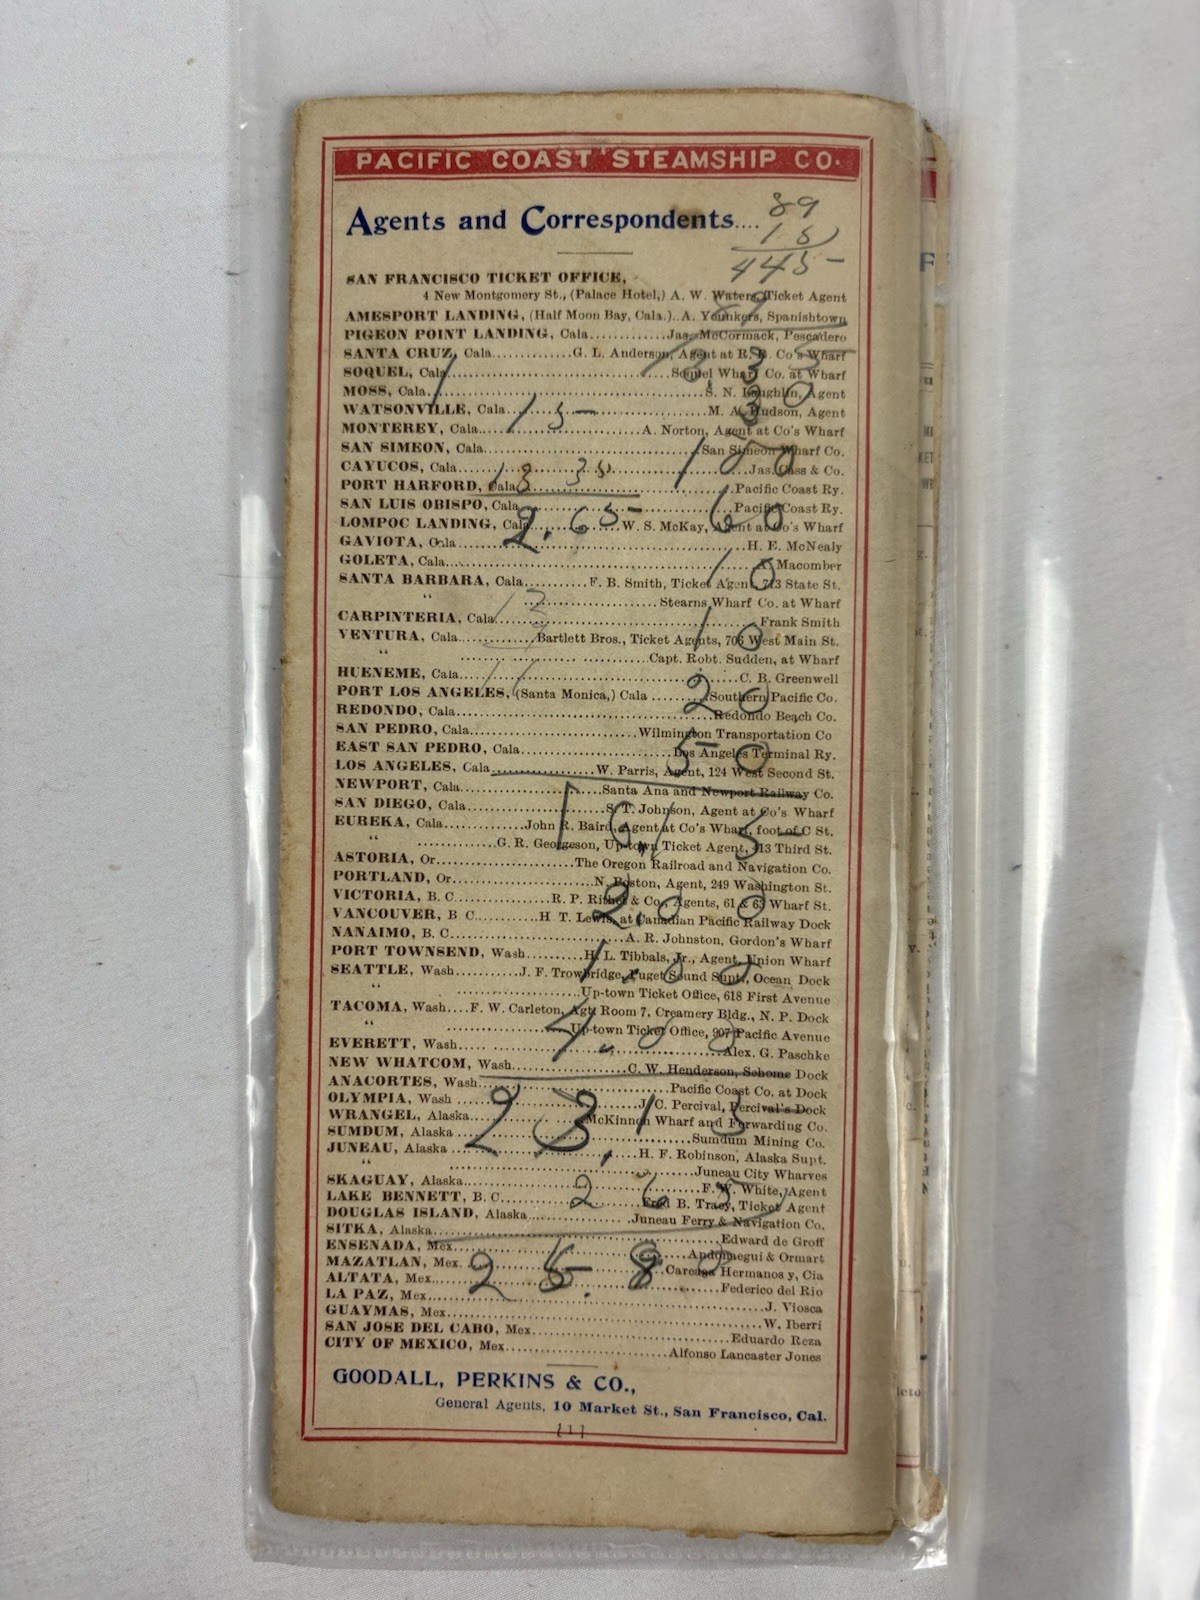 PACIFIC COAST STEAMSHIP CO.
Agents and Correspondents....
89
15
445-
SAN FRANCISCO TICKET OFFICE,
4 New Montgomery St., (Palace Hotel,) A. W. Waters, Ticket Agent
AMESPORT LANDING, (Half Moon Bay, Cala.)..A. Younkers, Spanishtown
PIGEON POINT LANDING, Cala.............Jas. McCormack, Pescadero
SANTA CRUZ, Cala.............G. L. Anderson, Agent at R. R. Co's Wharf
SOQUEL, Cala.............Soquel Wharf Co. at Wharf
MOSS, Cala.............S. N. Laughlin, Agent
WATSONVILLE, Cala.............M. A. Hudson, Agent
MONTEREY, Cala.............A. Norton, Agent at Co's Wharf
SAN SIMEON, Cala.............San Simeon Wharf Co.
CAYUCOS, Cala.............Jas. Cass & Co.
PORT HARFORD, Cala.............Pacific Coast Ry.
SAN LUIS OBISPO, Cala.............Pacific Coast Ry.
LOMPOC LANDING, Cala.............W. S. McKay, Agent at Co's Wharf
GAVIOTA, Cala.............H. E. McNealy
GOLETA, Cala.............Macomber
SANTA BARBARA, Cala..........F. B. Smith, Ticket Agent, 713 State St.
"..........Stearns Wharf Co. at Wharf
CARPINTERIA, Cala.............Frank Smith
VENTURA, Cala.............Bartlett Bros., Ticket Agents, 706 West Main St.
"..........Capt. Robt. Sudden, at Wharf
HUENEME, Cala.............C. B. Greenwell
PORT LOS ANGELES, (Santa Monica,) Cala..........Southern Pacific Co.
REDONDO, Cala.............Redondo Beach Co.
SAN PEDRO, Cala.............Wilmington Transportation Co
EAST SAN PEDRO, Cala.............Los Angeles Terminal Ry.
LOS ANGELES, Cala.............W. Parris, Agent, 124 West Second St.
NEWPORT, Cala.............Santa Ana and Newport Railway Co.
SAN DIEGO, Cala.............S. T. Johnson, Agent at Co's Wharf
EUREKA, Cala.............John R. Baird, Agent at Co's Wharf, foot of C St.
"..........G. R. Georgeson, Up-town Ticket Agent, 413 Third St.
ASTORIA, Or.............The Oregon Railroad and Navigation Co.
PORTLAND, Or.............N. Poston, Agent, 249 Washington St.
VICTORIA, B. C.............R. P. Rithet & Co., Agents, 61 & 63 Wharf St.
VANCOUVER, B C..........H T. Lewis, at Canadian Pacific Railway Dock
NANAIMO, B. C.............A. R. Johnston, Gordon's Wharf
PORT TOWNSEND, Wash..........H. L. Tibbals, Jr., Agent, Union Wharf
SEATTLE, Wash..........J. F. Trowbridge, Puget Sound Supt., Ocean Dock
..........Up-town Ticket Office, 618 First Avenue
TACOMA, Wash....F. W. Carleton, Agt. Room 7, Creamery Bldg., N. P. Dock
"..........Up-town Ticket Office, 907 Pacific Avenue
EVERETT, Wash.............Alex. G. Paschke
NEW WHATCOM, Wash.............C. W. Henderson, Sehome Dock
ANACORTES, Wash.............Pacific Coast Co. at Dock
OLYMPIA, Wash.............J. C. Percival, Percival's Dock
WRANGEL, Alaska.............McKinnon Wharf and Forwarding Co.
SUMDUM, Alaska.............Sumdum Mining Co.
JUNEAU, Alaska.............H. F. Robinson, Alaska Supt.
"..........Juneau City Wharves
SKAGUAY, Alaska.............F. W. White, Agent
LAKE BENNETT, B. C.............Fred B. Tracy, Ticket Agent
DOUGLAS ISLAND, Alaska.............Juneau Ferry & Navigation Co.
SITKA, Alaska.............Edward de Groff
ENSENADA, Mex.............& Ormart
MAZATLAN, Mex.............Careaga Hermanos y, Cia
ALTATA, Mex.............Federico del Rio
LA PAZ, Mex.............J. Viosca
GUAYMAS, Mex.............W. Iberri
SAN JOSE DEL CABO, Mex.............Eduardo Reza
CITY OF MEXICO, Mex.............Alfonso Lancaster Jones
GOODALL, PERKINS & CO.,
General Agents, 10 Market St., San Francisco, Cal.
[1]
15-
2.65-
150
60
10
10
20
50
2.00
1.00
4.00
23.15